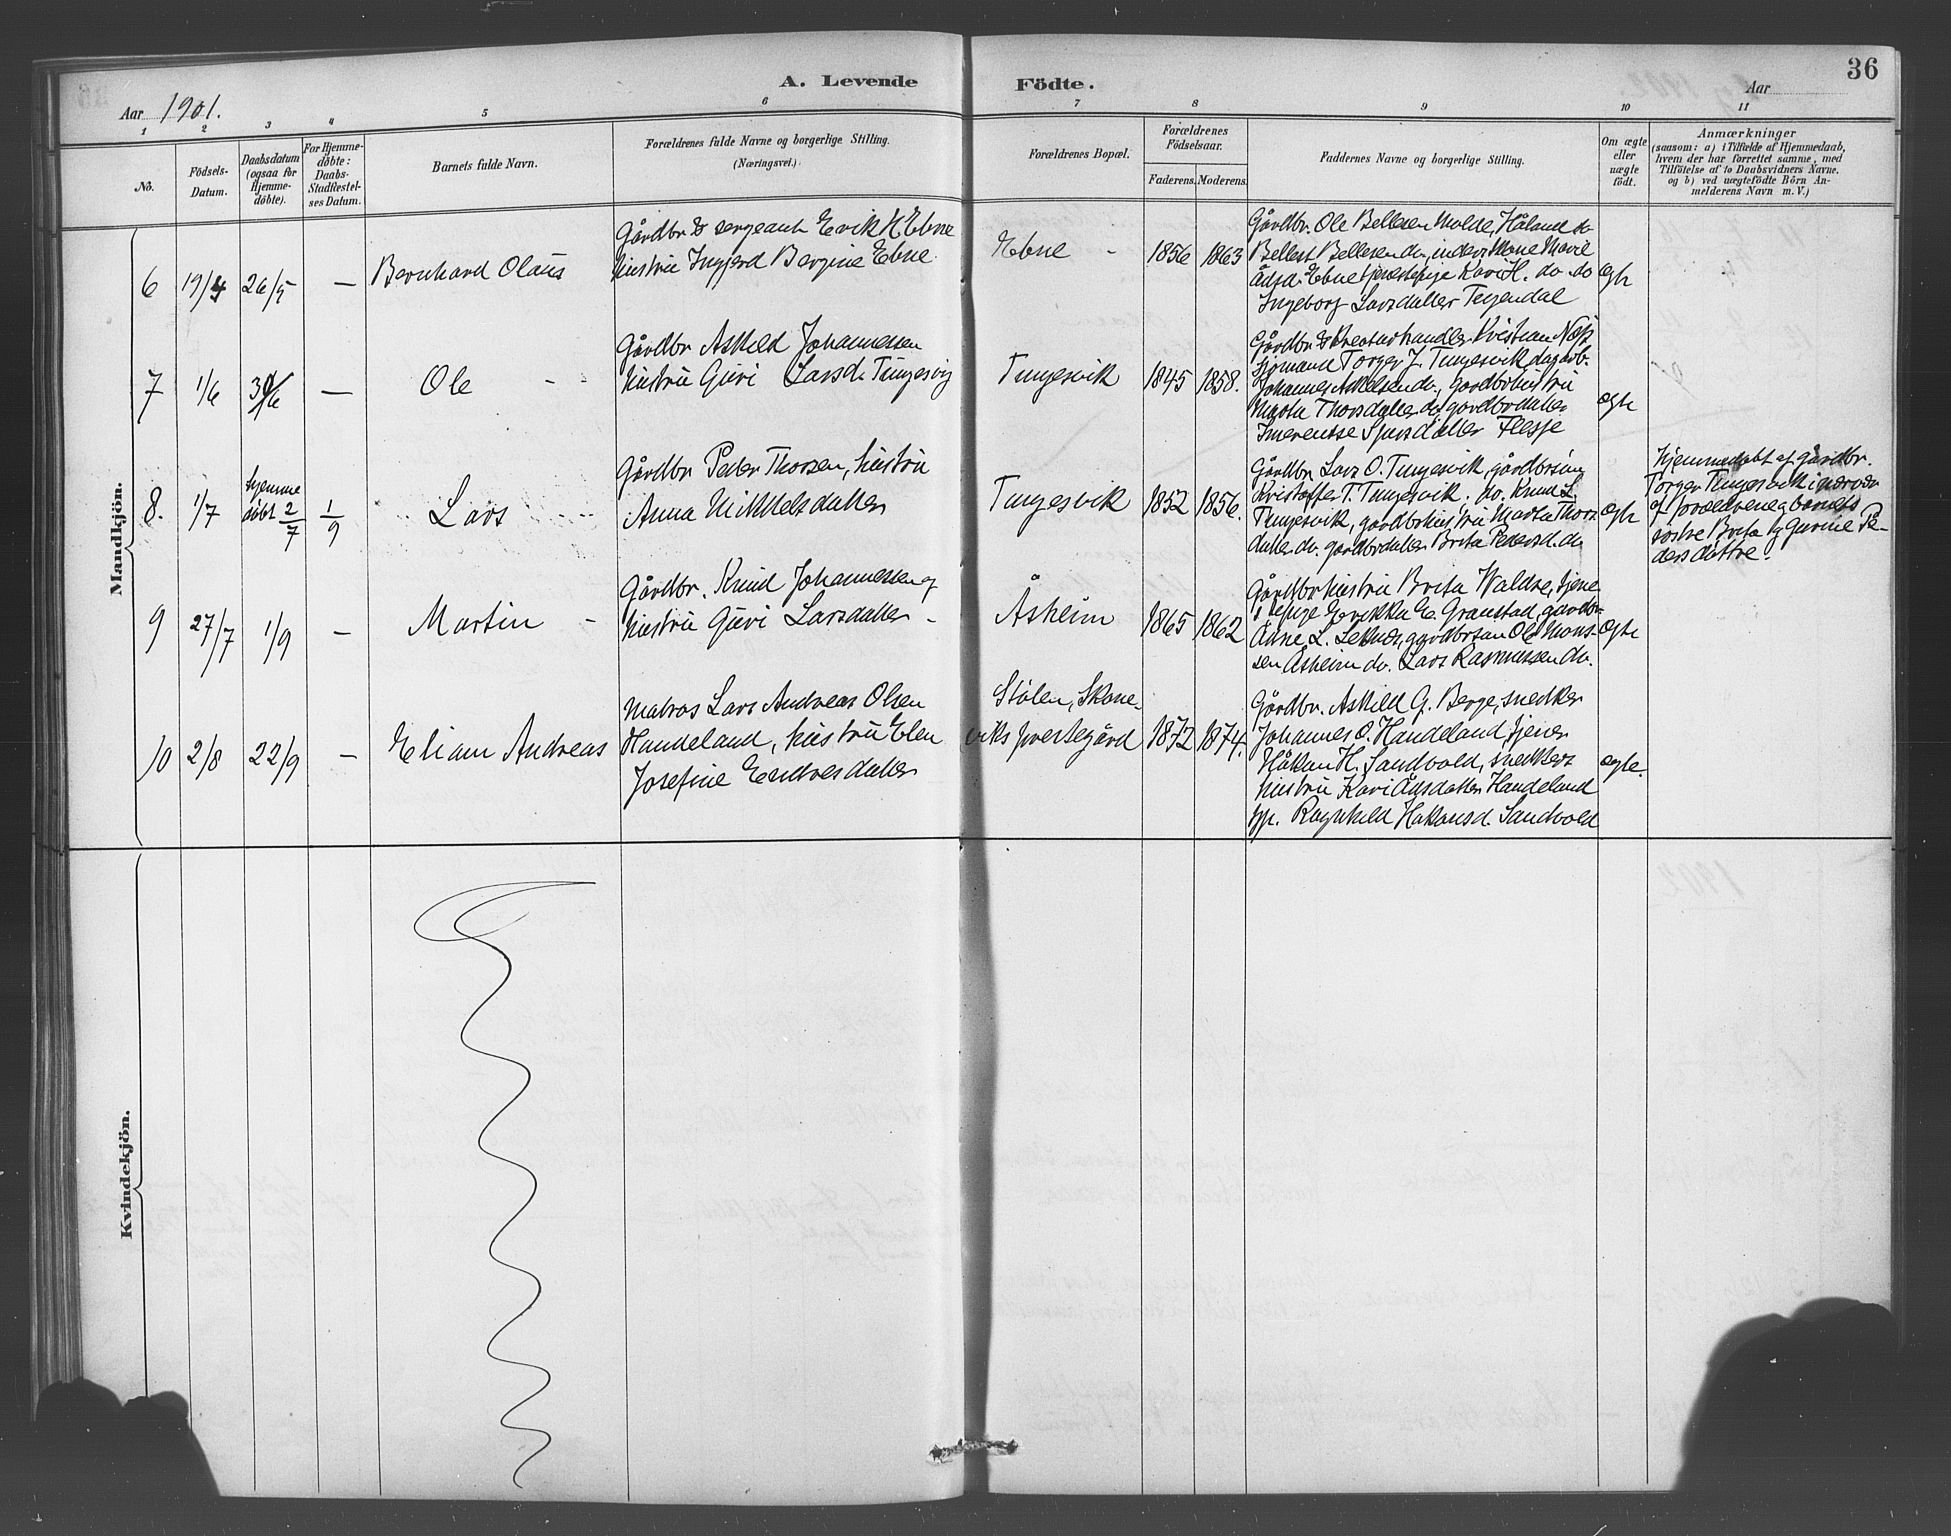 A. Levende Födte.
36
Aar 1901.
Aar
1 2 3 4 5 6 7 8 9 10 11
No.
Födsels-Datum.
Daabsdatum (ogsaa for Hjemme-döbte).
For Hjemme-döbte: Daabs-Stadfæstel-ses Datum.
Barnets fulde Navn.
Forældrenes fulde Navne og borgerlige Stilling. (Næringsvei.)
Forældrenes Bopæl.
Forældrenes Födselsaar.
Faderens. Moderens.
Faddernes Navne og borgerlige Stilling.
Om ægte eller uægte födt.
Anmærkninger
(saasom: a) i Tilfælde af Hjemmedaab,
hvem der har forrettet samme, med
Tilföielse af to Daabsvidners Navne.
og b) ved uægtefödte Börn An-
melderens Navn m. V.)
Mandkjön.
6 19/4 26/5 — Bernhard Olaus
Gårdbr & sergeant Erik H Ebne
hustru Ingjerd Bergine Ebne
Ebne - 1856 1863
Gårdbr. Ole Bellesen Molde, Håland do
Bellest Bellesen do, inderst Mone Marie
Ådsd. Ebne tjenestepige Kari H. do do
Ingeborg Larsdatter Teigendal
egte
7 1/6 30/6 — Ole - -
Gårdbr Askild Johannessen
hustru Guri Larsd. Tungesvig
Tungesvik 1845 1858.
Gårdbr & Kreaturhandler Kristian Næs,
sjømand Torger J. Tungesvik dagarb.
Johannes Askildsen do., gårdbr hustru
Marta Thorsdatter do, gårdbrdatter
Imerentse Sjursdatter Flesje
egte
8. 1/7 hjemme
døbt 2/7 1/9 Lars
Gårdbr Peder Thorsen, hustru
Anna Mikkelsdatter
Tungesvik 1852 1856.
Gårdbr Lars O. Tungesvik, gårdbrsøn
Kristoffer T. Tungesvik. do. Knud L.
Tungesvik, gårdbrhustru Marta Thors
datter do. gårdbrdatter Brita Pedersd. do
egte
Hjemmedøbt af gårdbr.
Torger Tungesvik i nærvær
af forældrene og barnets
søstre Brita og Gurine Pe-
dersdøttre.
9 27/7 1/9 — Martin -
Gårdbr. Knud Johannessen og
hustru Guri Larsdatter -
Åsheim 1865 1862
Gårdbrhustru Brita Waldre, tjene
stepige Erikka E. Granstad, gårdbr
Ådne L. Leknes, gårdbrsøn Ole Mons-
sen Åsheim do. Lars Rasmussen do.
egte
10 2/8 22/9 — Eliam Andreas
Matros Lars Andreas Olsen
Handeland, hustru Elen
Josefine Endresdatter
Stølen, Skone-
viks prestegård 1872 1874.
Gårdbr. Askild G. Berge, snedker
Johannes O. Handeland, tjener
Håkon H. Sandvold, snedkers
hustru Kari Ådsdatter Handeland
pp. Ragnhild Hakonsd. Sandvold
egte.
Kvindekjön.